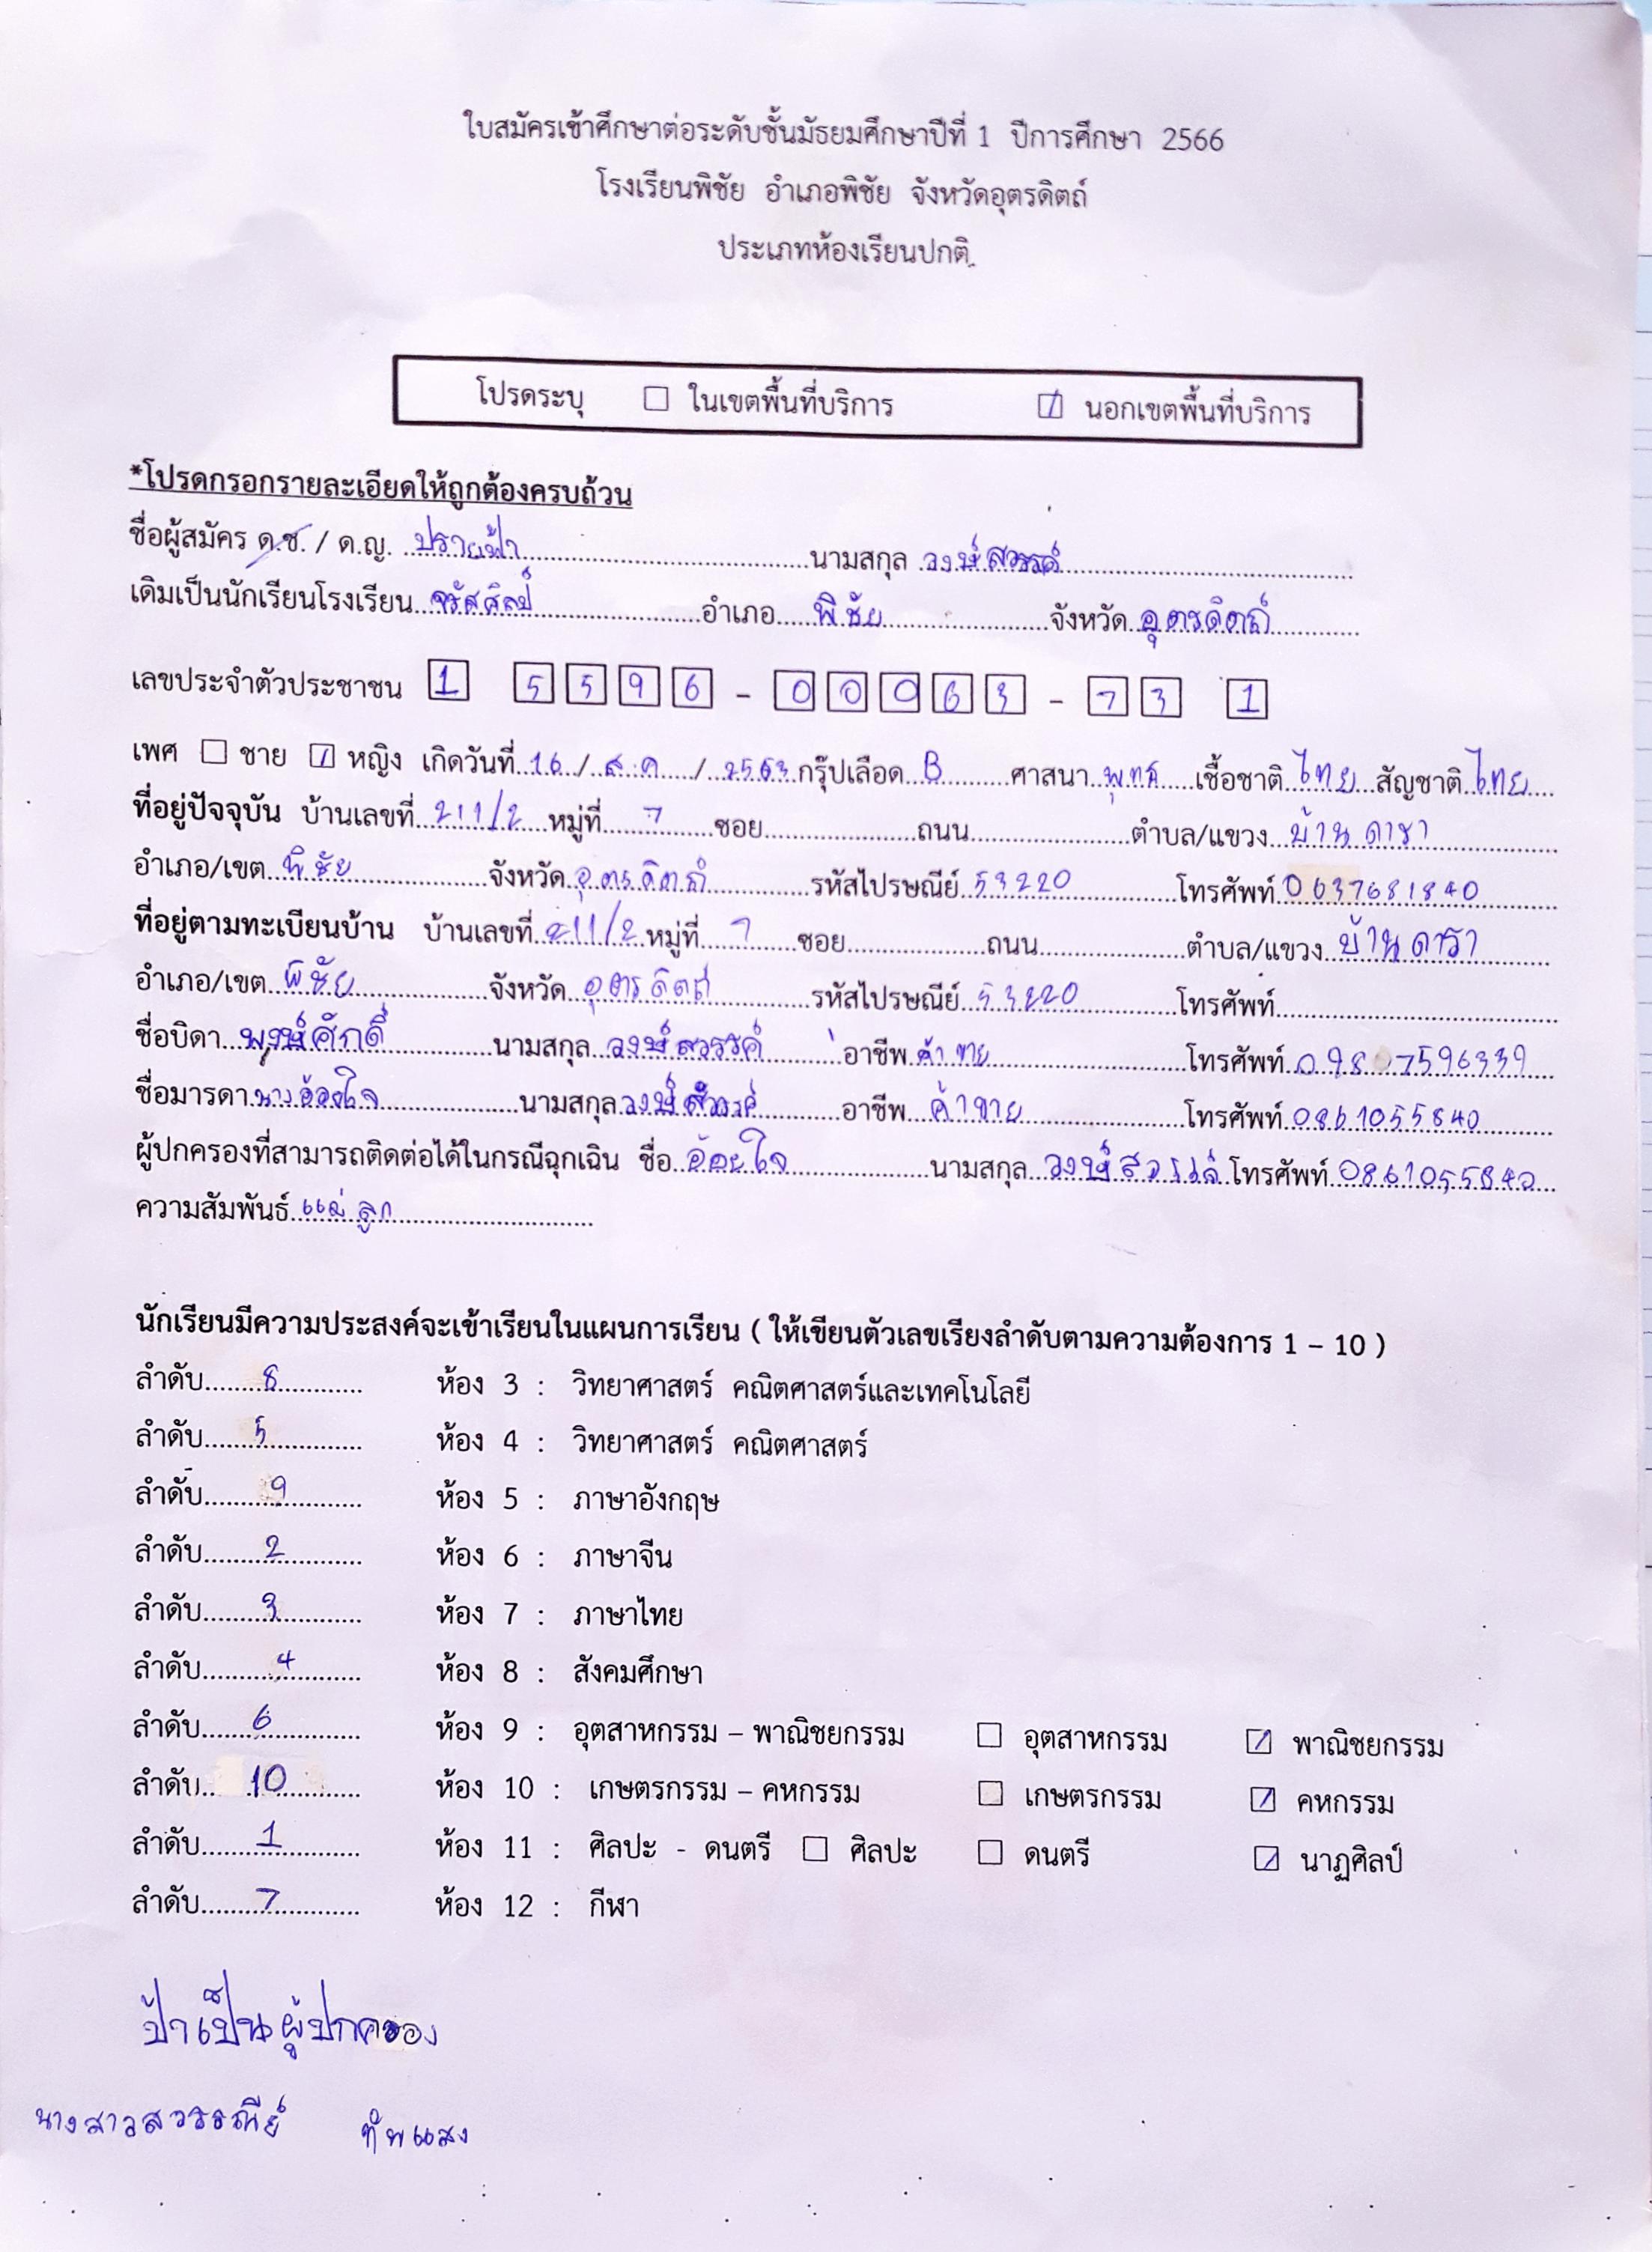 ใบสมัครเข้าศึกษาต่อระดับชั้นมัธยมศึกษาปีที่ 1 ปีการศึกษา 2566
โรงเรียนพิชัย อำเภอพิชัย จังหวัดอุตรดิตถ์
ประเภทห้องเรียนปกติ
โปรดระบุ ☐ ในเขตพื้นที่บริการ ☑ นอกเขตพื้นที่บริการ
*โปรดกรอกรายละเอียดให้ถูกต้องครบถ้วน
ชื่อผู้สมัคร ด.ช. / ด.ญ. ปรายฟ้า นามสกุล วงษ์สวรรค์
เดิมเป็นนักเรียนโรงเรียน จรัสศิลป์ อำเภอ พิชัย จังหวัด อุตรดิตถ์
เลขประจำตัวประชาชน 1 5596 - 00063 - 73 1
เพศ ☐ ชาย ☑ หญิง เกิดวันที่ 16 / ส.ค / 2563 กรุ๊ปเลือด B ศาสนา พุทธ เชื้อชาติ ไทย สัญชาติ ไทย
ที่อยู่ปัจจุบัน บ้านเลขที่ 211/2 หมู่ที่ 7 ซอย ถนน ตำบล/แขวง บ้านดารา
อำเภอ/เขต พิชัย จังหวัด อุตรดิตถ์ รหัสไปรษณีย์ 53220 โทรศัพท์ 0637681840
ที่อยู่ตามทะเบียนบ้าน บ้านเลขที่ 211/2 หมู่ที่ 7 ซอย ถนน ตำบล/แขวง บ้านดารา
อำเภอ/เขต พิชัย จังหวัด อุตรดิตถ์ รหัสไปรษณีย์ 53220 โทรศัพท์
ชื่อบิดา พงษ์ศักดิ์ นามสกุล วงษ์สวรรค์ อาชีพ ค้าขาย โทรศัพท์ 09807596339
ชื่อมารดา นางอ้อยใจ นามสกุล วงษ์สวรรค์ อาชีพ ค้าขาย โทรศัพท์ 0861055840
ผู้ปกครองที่สามารถติดต่อได้ในกรณีฉุกเฉิน ชื่อ อ้อยใจ นามสกุล วงษ์สวรรค์ โทรศัพท์ 0861055840
ความสัมพันธ์ แม่ลูก
นักเรียนมีความประสงค์จะเข้าเรียนในแผนการเรียน ( ให้เขียนตัวเลขเรียงลำดับตามความต้องการ 1 – 10 )
ลำดับ 8 ห้อง 3 : วิทยาศาสตร์ คณิตศาสตร์และเทคโนโลยี
ลำดับ 5 ห้อง 4 : วิทยาศาสตร์ คณิตศาสตร์
ลำดับ 9 ห้อง 5 : ภาษาอังกฤษ
ลำดับ 2 ห้อง 6 : ภาษาจีน
ลำดับ 3 ห้อง 7 : ภาษาไทย
ลำดับ 4 ห้อง 8 : สังคมศึกษา
ลำดับ 6 ห้อง 9 : อุตสาหกรรม – พาณิชยกรรม ☐ อุตสาหกรรม ☑ พาณิชยกรรม
ลำดับ 10 ห้อง 10 : เกษตรกรรม – คหกรรม ☐ เกษตรกรรม ☑ คหกรรม
ลำดับ 1 ห้อง 11 : ศิลปะ - ดนตรี ☐ ศิลปะ ☐ ดนตรี ☑ นาฏศิลป์
ลำดับ 7 ห้อง 12 : กีฬา
ป้าเป็นผู้ปกครอง
นางสาวสวรรณีย์ ทัพแสง